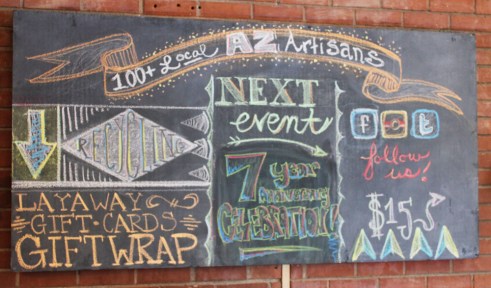 100+ Local AZ Artisans
RECYCLING
LAYAWAY
GIFT-CARDS
GIFTWRAP
NEXT
event
7 year
ANNIVERSARY
CELEBRATION!
f t
follow
us!
$15